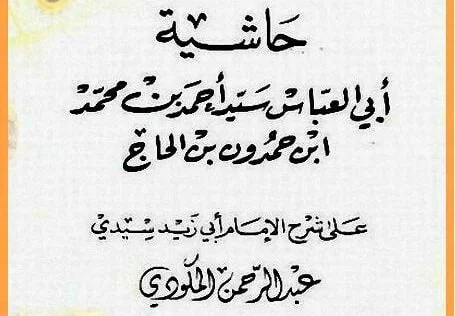 حاشية
أبي العباس سيد أحمد بن محمد
ابن حمدون بن الحاج
على شرح الإمام أبي زيد سيدي
عبد الرحمن المكودي